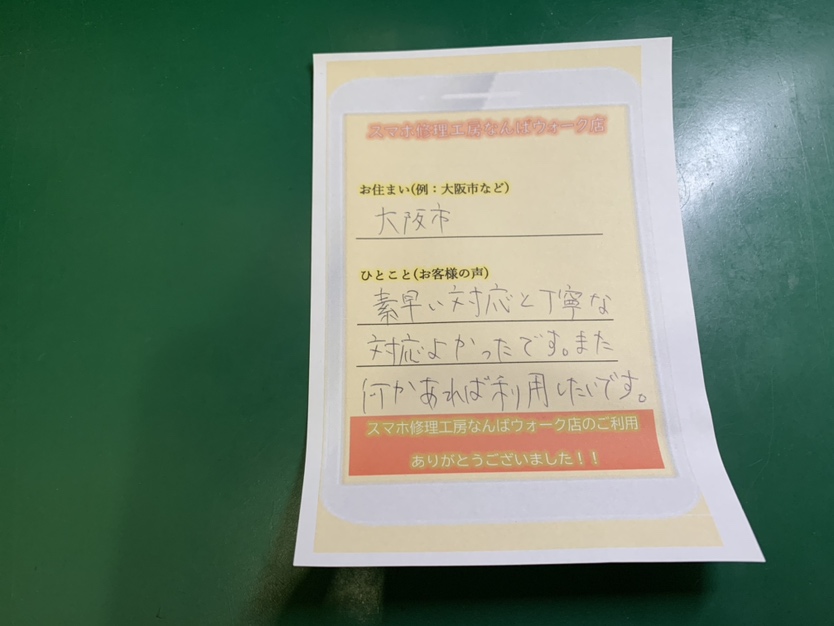 スマホ修理工房なんばウォーク店
お住まい(例：大阪市など)
大阪市
ひとこと(お客様の声)
素早い対応と丁寧な
対応よかったです。また
何かあれば利用したいです。
スマホ修理工房なんばウォーク店のご利用
ありがとうございました！！